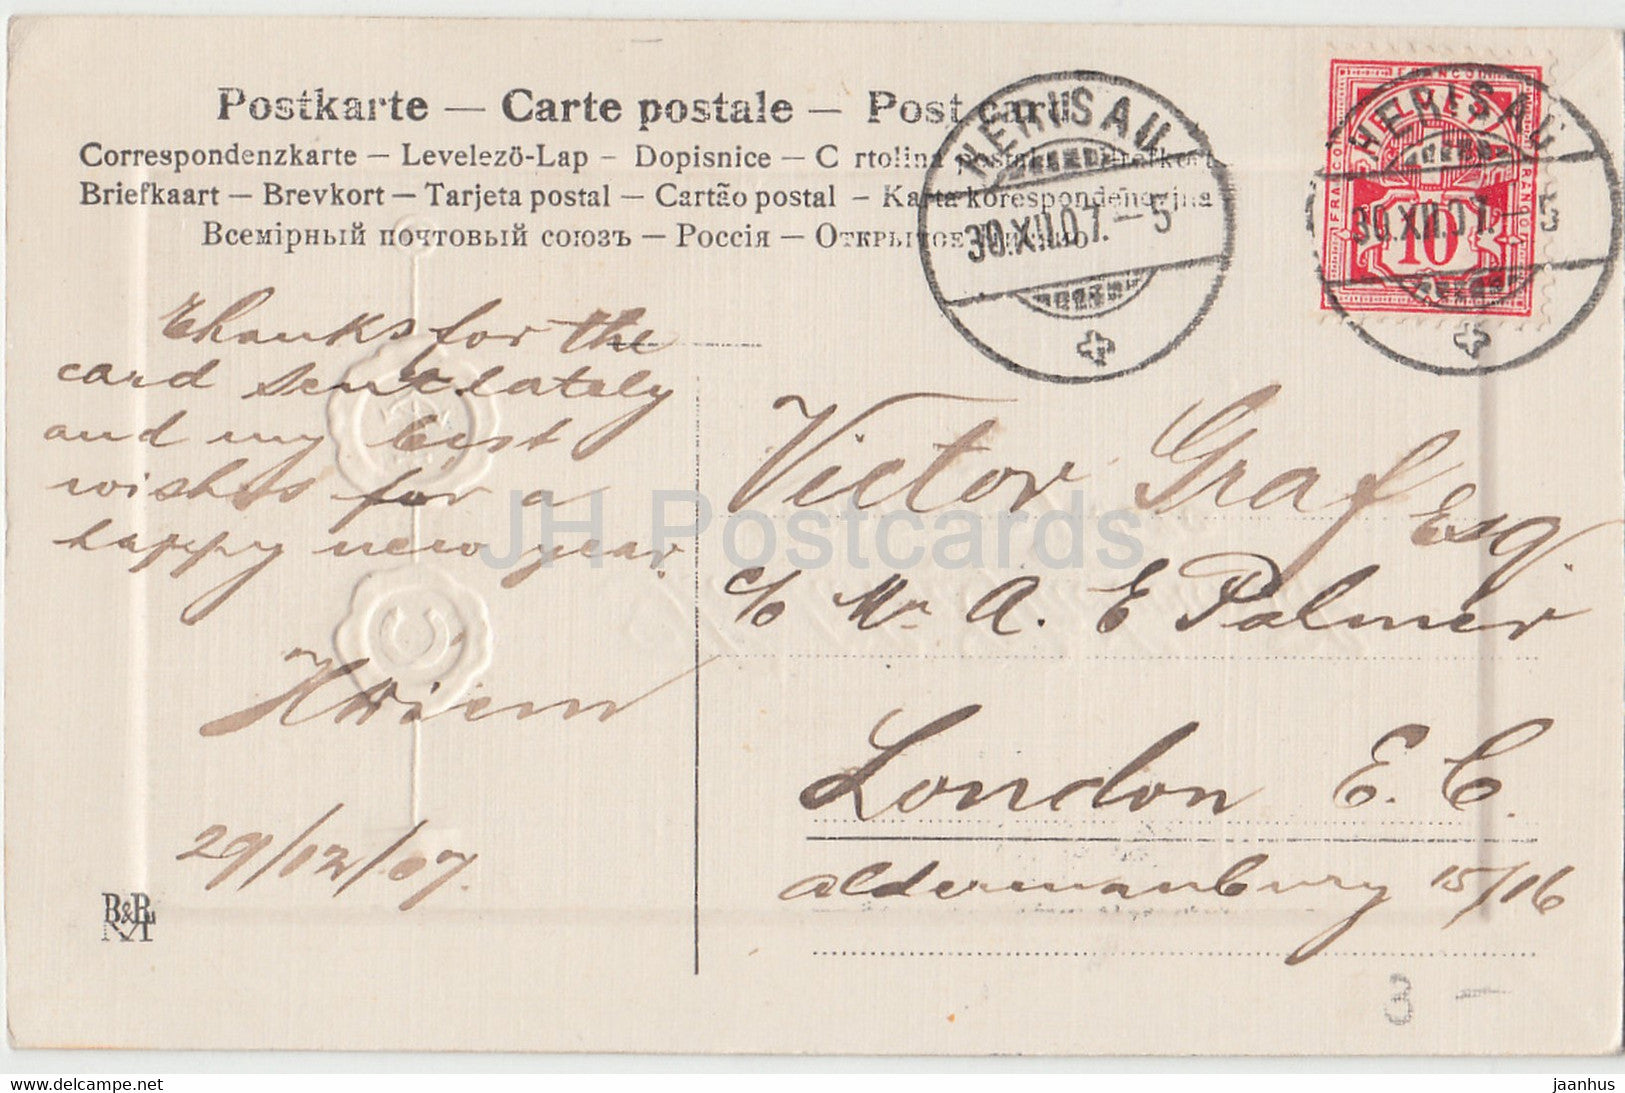 Postkarte — Carte postale — Post card
Correspondenzkarte — Levelező-Lap — Dopisnice — C rtolina postale
Briefkaart — Brevkort — Tarjeta postal — Cartão postal — Karta korespondencyjna
Всемірный почтовый союзъ — Россія — Открытое письмо
HERISAU
30.XII.07.–5
HERISAU
30.XII.07.–5
FRANCO
10
Thanks for the
card sent lately
and my best
wishes for a
happy new year.
29/12/07.
B&R
Victor Graf Esq.
c/o Mr A. E Palmer
London E. C.
Aldermanbury 15/16
3 –
JH Postcards
www.delcampe.net
jaanhus